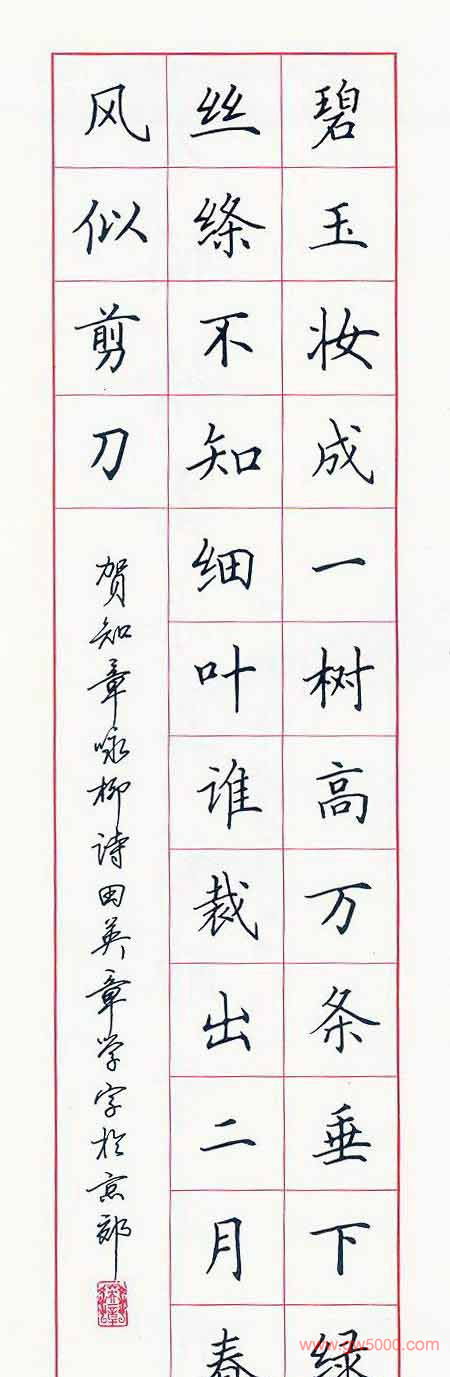 碧玉妆成一树高万条垂下绿
丝绦不知细叶谁裁出二月春
风似剪刀
贺知章咏柳诗田英章学字于京郊
www.gw5000.com